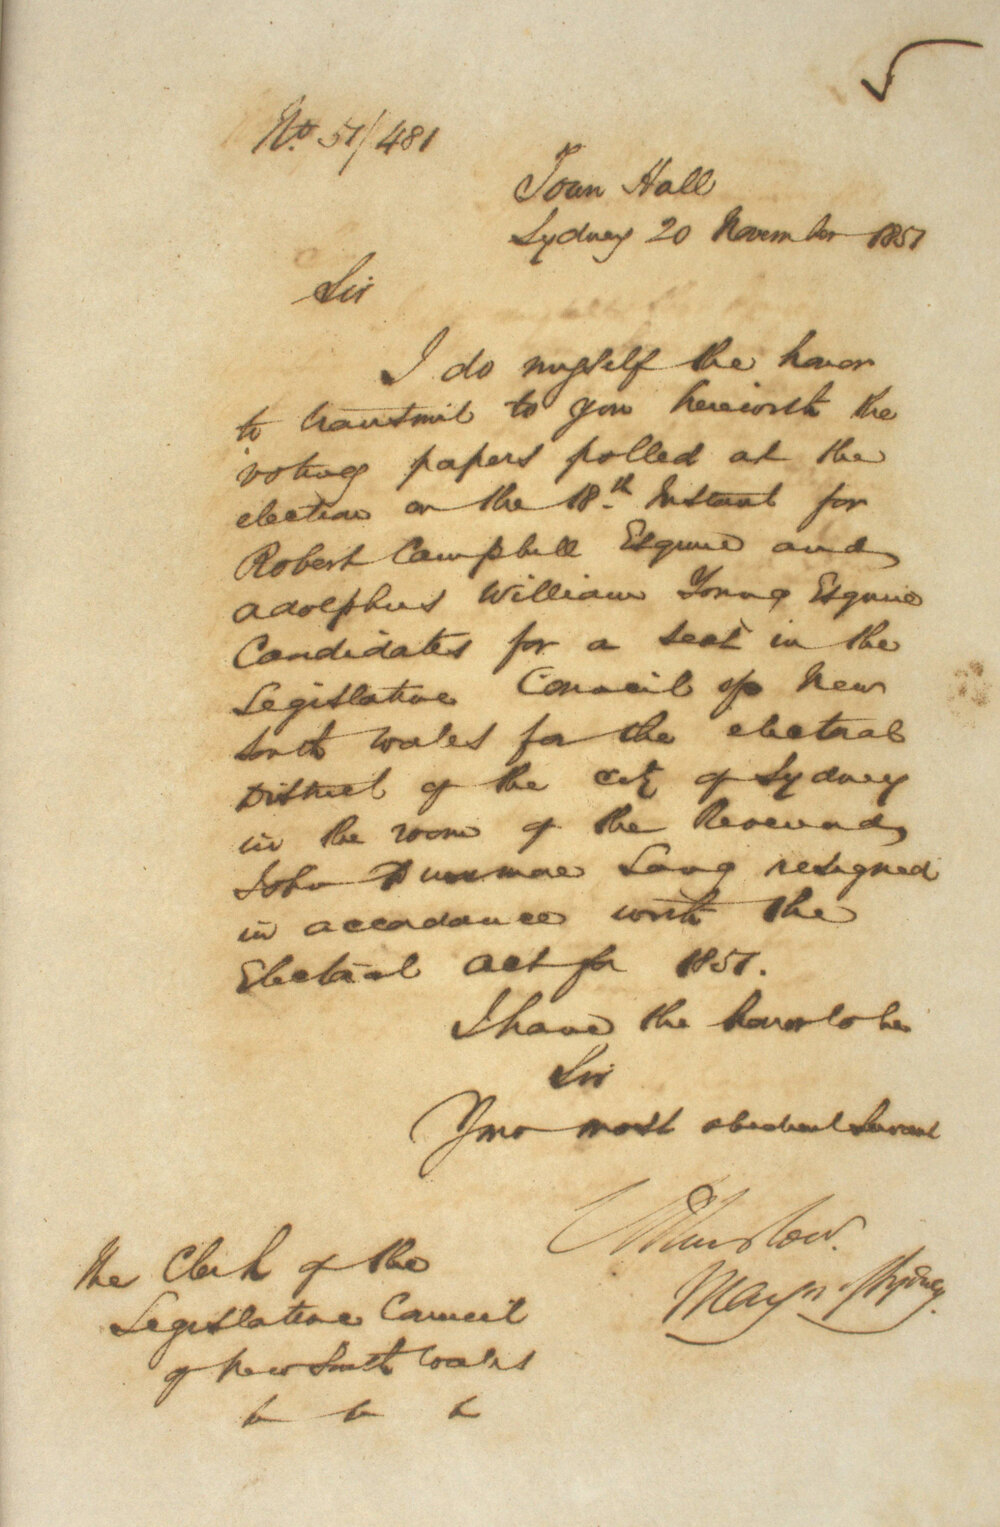 No. 51/481
Town Hall
Sydney 20 November 1851
Sir
I do myself the honor
to transmit to you herewith the
voting papers polled at the
election on the 18.th Instant for
Robert Campbell Esquire and
Adolphus William Young Esquire
Candidates for a seat in the
Legislative Council of New
South Wales for the electoral
District of the city of Sydney
in the room of the Reverend
John Dunmore Lang resigned
in accordance with the
Electoral Act for 1851.
I have the honor to be
Sir
Your most obedient Servant
Mayor of Sydney.
The Clerk of the
Legislative Council
of New South Wales